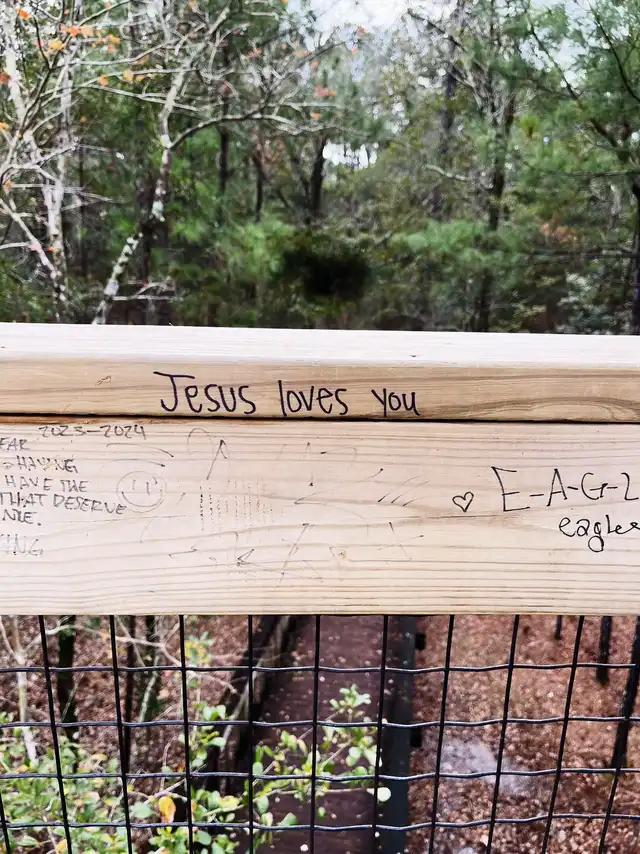 Jesus loves you
2023-2024
HAVING
HAVE THE
THAT DESERVE
E-A-G-L
eagles